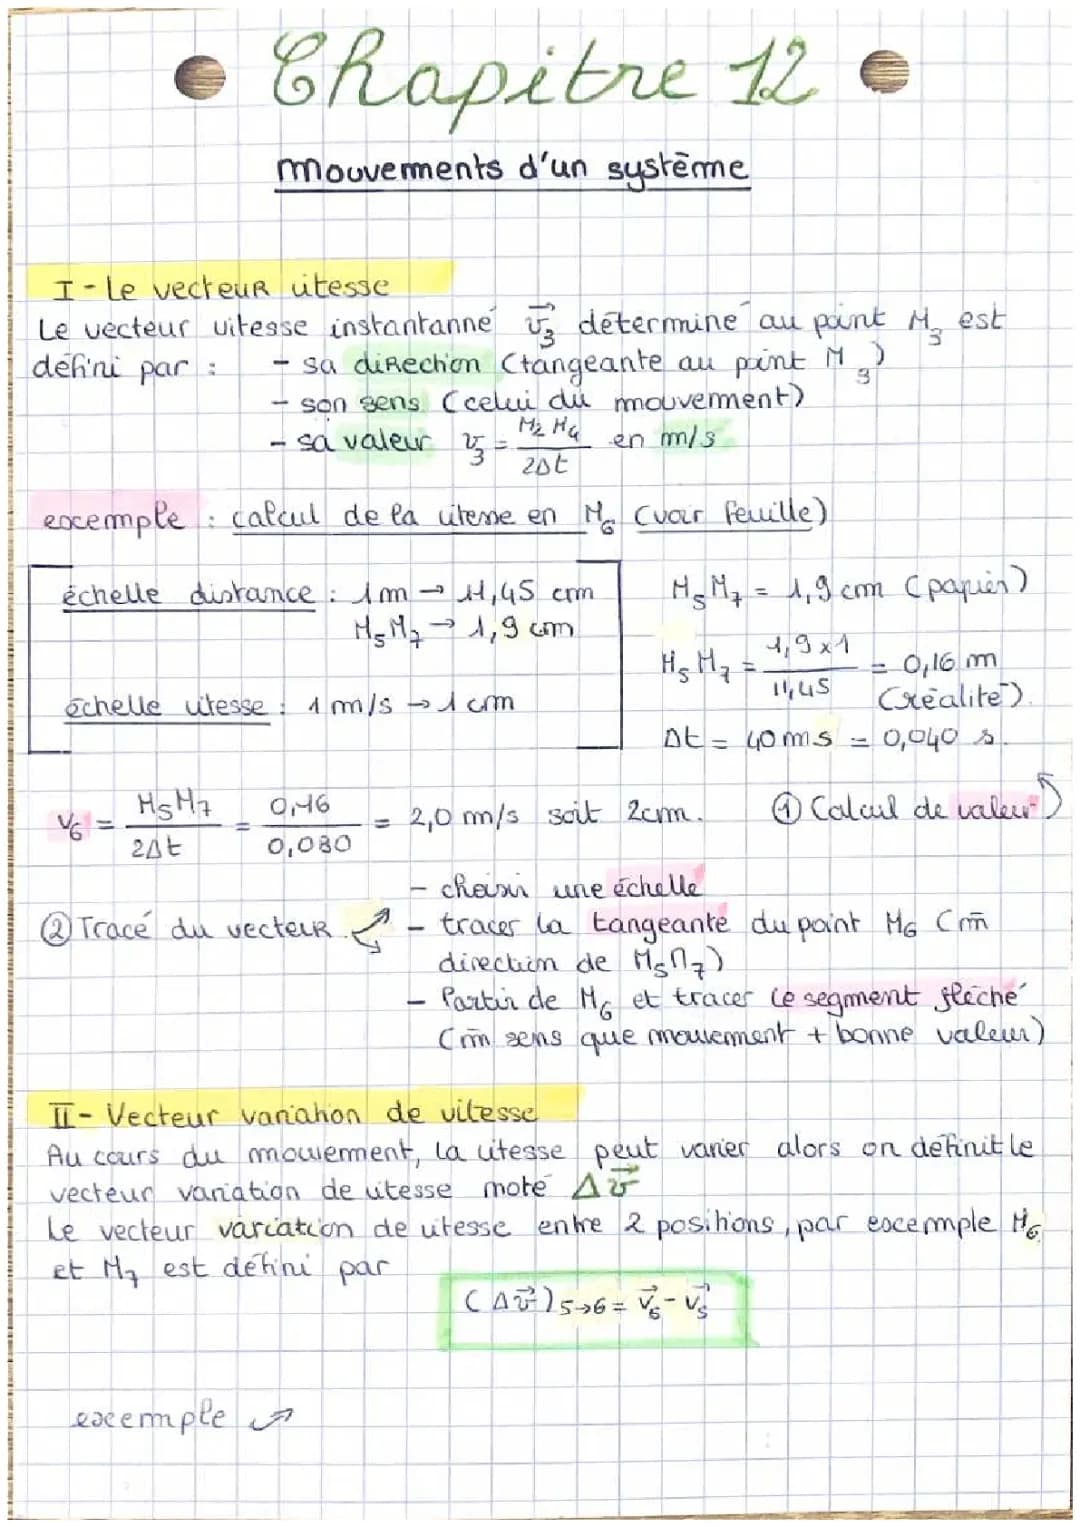 Chapitre 12
mouvements d'un système
I - Le vecteur vitesse
Le vecteur vitesse instantanné v⃗₃ déterminé au point M₃ est
défini par : - sa direction (tangeante au point M₃)
- son sens (celui du mouvement)
- sa valeur v₃ = M₂M₄ / 2Δt en m/s
exemple : calcul de la vitesse en M₆ (voir feuille)
échelle distance : 1m → 11,45 cm
M₅M₇ → 1,9 cm
échelle vitesse : 1 m/s → 1 cm
M₅M₇ = 1,9 cm (papier)
M₅M₇ = 1,9 x 1 / 11,45 = 0,16 m
(réalité).
Δt = 40 ms = 0,040 s.
V₆ = M₅M₇ / 2Δt = 0,16 / 0,080 = 2,0 m/s soit 2cm. ① Calcul de valeur
② Tracé du vecteur
- choisir une échelle
- tracer la tangeante du point M₆ (m̄
direction de M₅M₇)
- Partir de M₆ et tracer le segment fléché
(m̄ sens que mouvement + bonne valeur)
II - Vecteur variation de vitesse
Au cours du mouvement, la vitesse peut varier alors on définit le
vecteur variation de vitesse noté Δv⃗
Le vecteur variation de vitesse entre 2 positions, par exemple M₆
et M₇ est défini par
(Δv⃗)₅→₆ = v⃗₆ - v⃗₅
exemple